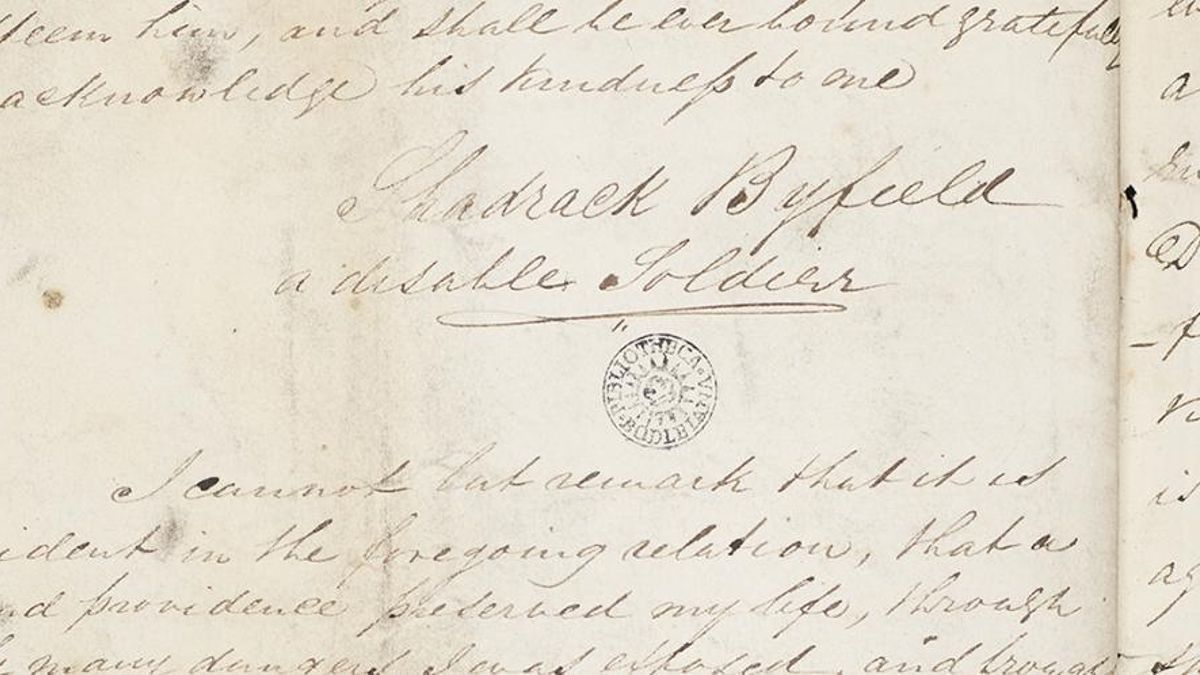 teem him, and shall be ever bound gratefully
acknowledge his kindness to me
Shadrack Byfield
a disable Soldierr
BIBLIOTHECA BODLEIANA
I cannot but remark that it is
ident in the foregoing relation, that a
nd providence preserved my life, through
many dangers I was exposed, and brough